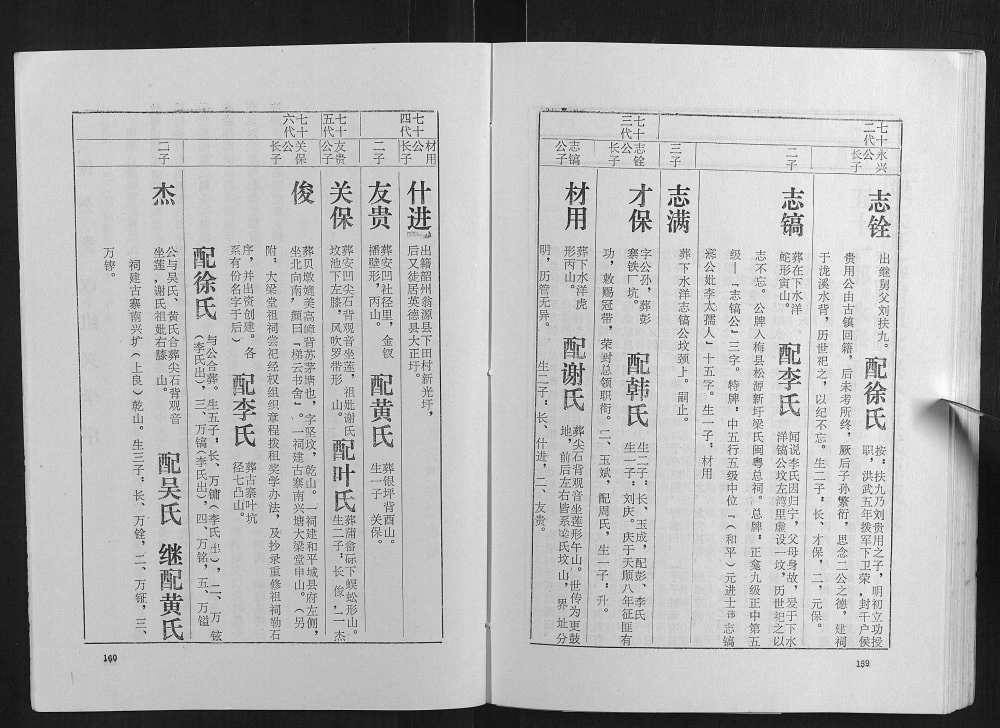 七十二代
永兴公长子
志铨
出继舅父刘扶九。
配徐氏
按：扶九乃刘贵用之子，明初立功授
职，洪武五年拨军下卫荣，封千户侯
贵用公由古镇回籍，后未考所终，厥后子孙繁衍，思念二公之德，建祠
于泷溪水背，历世祀之，以纪不忘。生二子：长、才保，二，元保。
二子
志镐
葬在下水洋
蛇形寅山。
配李氏
闻说李氏因归宁，父母身故，爰于下水
洋镐公坟左湾里虚设一坟，历世祀之以
志不忘。公牌入梅县松源新圩梁氏闽粤总祠。总牌：正龛九级正中第五
级—『志镐公』三字。特牌：中五行五级中位『（和平）元进士讳志镐
公妣李太孺人』十五字。生一子：材用
三子
志满
葬下水洋志镐公坟颈上。嗣止。
七十三代
志铨公长子
才保
字公孙，葬彭
寨铁厂坑。
配韩氏
生二子：长、玉成，配彭、李氏
生二子：刘庆。庆于天顺八年征匪有
功，敕赐冠带，荣封总领职衔。二、玉斌，配周氏，生一子：升。
志镐公子
材用
葬下水洋虎
形丙山。
配谢氏
葬尖石背观音坐莲形午山。世传为更鼓
地，前后左右皆系梁氏坟山，界址分
明，历管无异。 生二子：长、什进，二、友贵。
159
七十四代
材用公长子
什进
出籍韶州翁源县下田村新光圩，
后又徒居英德县大正圩。
二子
友贵
葬安凹社径里，金钗
播壁形，丙山。
配黄氏
葬银坪背酉山。
生一子 关保。
七十五代
友贵公子
关保
葬安凹尖石背观音坐莲，祖妣谢氏
坟池下左膝，风吹罗带形 山。
配叶氏
葬蒲畲砾下蜈蚣形山。
生二子：长俊，二杰
七十六代
关保公长子
俊
葬贝墩塘美高嶂背苏茅塘也，字坚坟，乾山。一祠建和平城县府左侧，
坐北向南，颜曰『梯云书舍』。一祠建古寨南兴塘大梁堂申山。（另
附：大梁堂祖祠尝祀经权组织章程拨租奖学办法，及抄录重修祖祠勒石
序，并出资创建。各
系有份名字于后）
配李氏
葬古寨叶坑
径七凸山。
配徐氏
与公合葬。生五子：长、万镛（李氏出），二、万铉
（李氏出），三、万镐（李氏出），四、万铭，五、万镒
二子
杰
公与吴氏、黄氏合葬尖石背观音
坐莲，谢氏祖妣右膝 山。
配吴氏 继配黄氏
祠建古寨南兴圹（上良）乾山。生三子：长、万铨，二、万钲，三、
万锣。
160